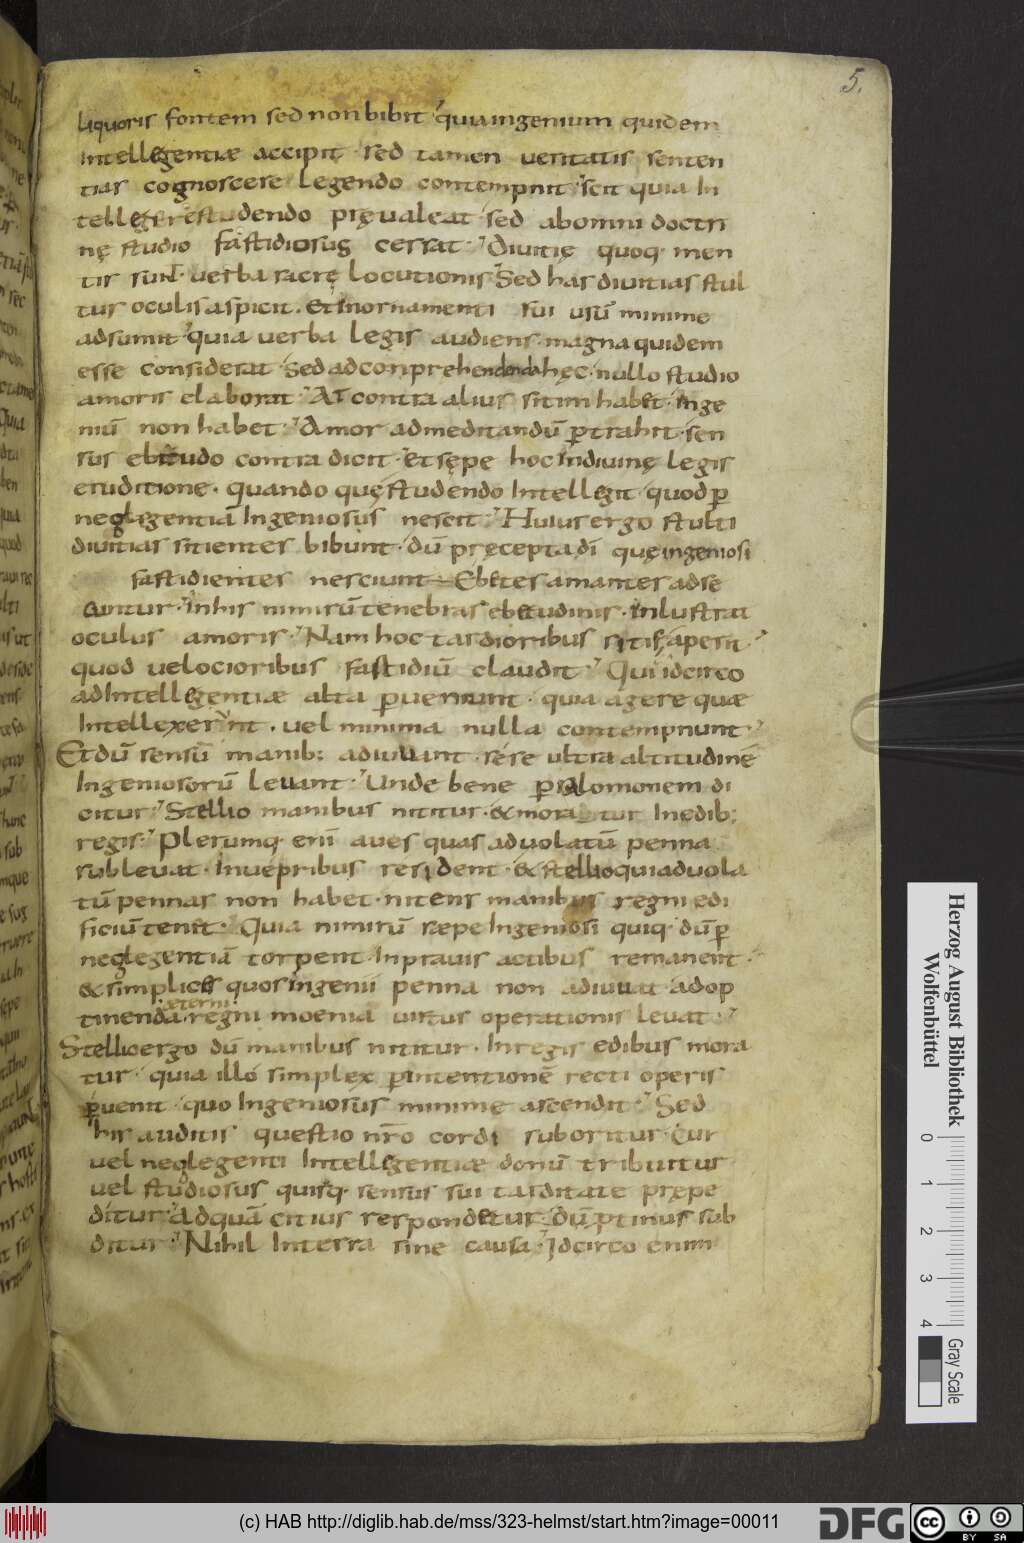 5.
liquoris fontem sed non bibit. quia ingenium quidem
intellegentiæ accipit. sed tamen ueritatis senten
tias cognoscere legendo contempnit. scit quia in
tellegere studendo pręualeat. sed ab omni doctri
nę studio fastidiosus cessat. Diuitię quoq. men
tis sunt uerba sacrę locutionis. Sed has diuitias stul
tus oculis aspicit. et in ornamenti sui usū minime
adsumit. quia uerba legis audiens. magna quidem
esse considerat. Sed ad conprehendenda hęc. nullo studio
amoris elaborat. At contra alius sitim habet. inge
niū non habet. Amor ad meditandū ꝑtrahit. sen
sus ebitudo contradicit. et sępe hoc in diuinę legis
eruditione. quando quę studendo intellegit. quod ꝑ
neglegentiā ingeniosus nescit. Huius ergo stulti
diuitias sitientes bibunt. dū pręcepta dī quę ingeniosi
fastidientes nesciunt. Ebetes amantes adse
cuntur. in his nimirū tenebras ebetudinis. inlustrat
oculus amoris. Nam hoc tardioribus sitis aperit.
quod uelocioribus fastidiū claudit. Qui idcirco
ad intellegentiæ alta ꝑueniunt. quia agere quæ
intellexerint. uel minima nulla contempnunt.
Et dū sensū manib; adiuuant. sese ultra altitudinē
ingeniosorū leuant. Unde bene ꝑ salomonem di
citur. Stellio manibus nititur. & moratur in edib;
regis. Plerumq. enī aues quas ad uolatū penna
subleuat. in uepribus resident. & stellio qui ad uola
tū pennas non habet. nitens manibus regni edi
ficiū tenet. Quia nimirū sæpe ingeniosi quiq. dū ꝑ
neglegentiā torpent. in prauis actibus remanent.
& simplices quos ingenii penna non adiuuat. ad op
tinenda æterni regni moenia uirtus operationis leuat.
Stellio ergo dū manibus nititur. in regis edibus mora
tur. quia illo simplex ꝑ intentionē recti operis
ꝑuenit. quo ingeniosus minime ascendit. Sed
his auditis questio nr̄o cordi suboritur. cur
uel neglegenti intellegentiæ donū tribuitur
uel studiosus quisq. sensus sui tarditate prępe
ditur. Ad quā citius respondetur. dū ꝓtinus sub
ditur. Nihil in terra sine causa. Idcirco enim
Herzog August Bibliothek
Wolfenbüttel
0 1 2 3 4
Gray Scale
(c) HAB http://diglib.hab.de/mss/323-helmst/start.htm?image=00011
DFG
cc BY SA